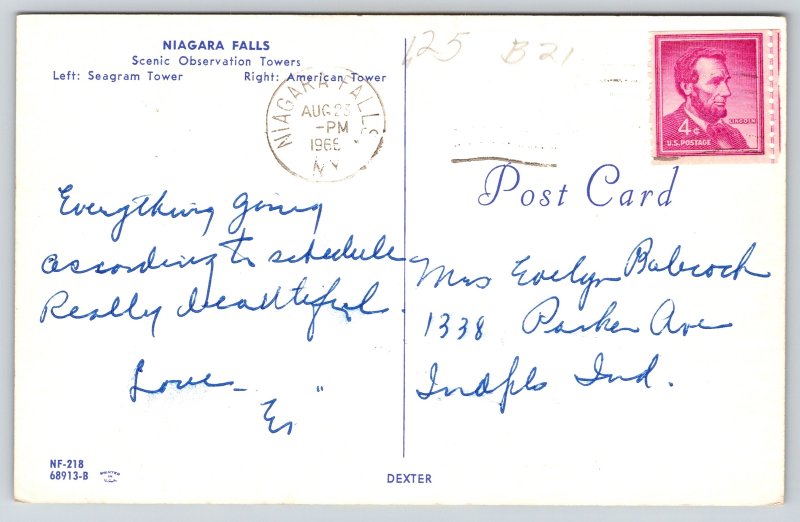 NIAGARA FALLS
Scenic Observation Towers
Left: Seagram Tower Right: American Tower
125 B21
NIAGARA FALLS
AUG 23
-PM
N.Y.
LINCOLN
4¢
U.S. POSTAGE
Post Card
Everything going
according to schedule
Really beautiful.
Love -
Mrs Evelyn Babcock
1338 Parker Ave
Indpls Ind.
NF-218
68913-B
PRINTED
IN
U.S.A.
DEXTER